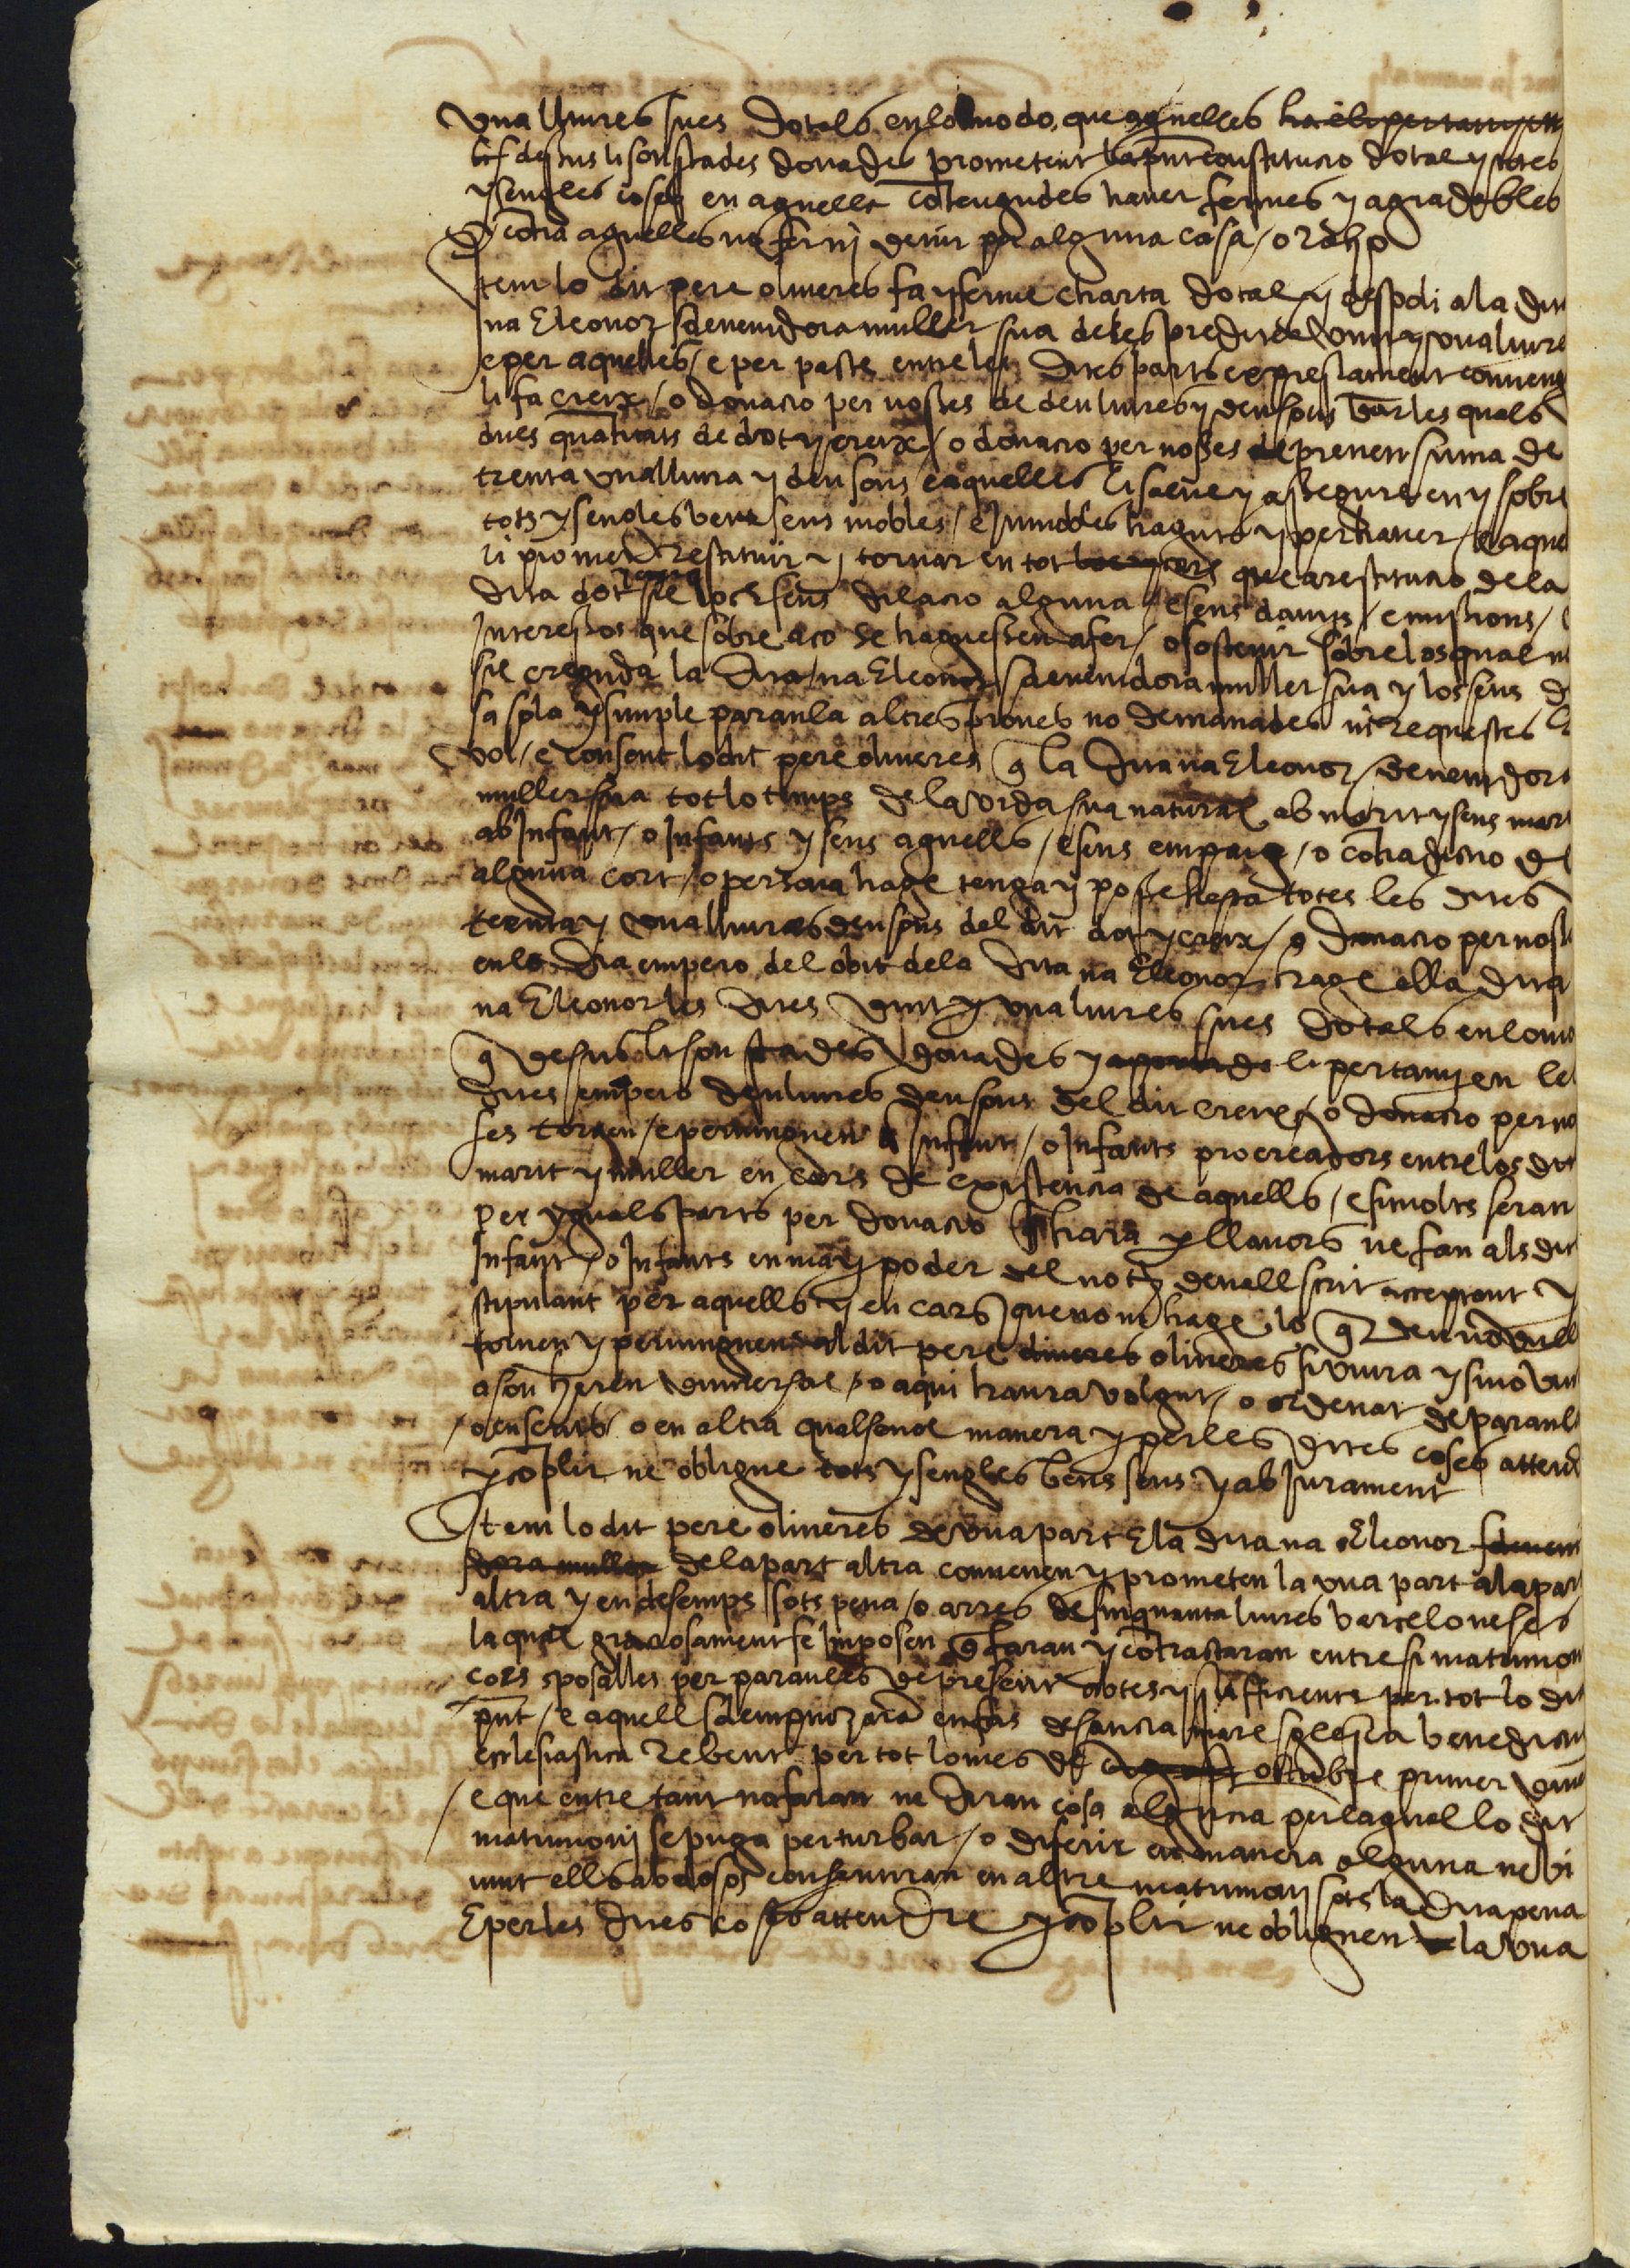 una lliures sues dotals en lo modo que aquelles
dessus li son stades donades prometent la pnt constitucio dotal y totes
y sengles coses en aquella cotengudes haver fermes y agradables
E cotra aquelles no fer nj venir per alguna casa / o raho
Item lo dit pere oliueres fa y ferme charta dotal y despoli a la dita
na Eleonor sdevenidora muller sua de les predites vint y una lliure
e per aquelles / e per pacte entre les dites parts expressament conueng
li fa creix / o donacio per nosses de deu liures y deu sous bar les quals
dues quatitats de dot y creix / o donacio per nosses prenen suma de
trenta una lliura y deu sous e aquelles li salue y assegure en y sobre
tots y sengles bens seus mobles / e Immobles haguts y per hauer / e aque
li promet restituir y tornar en tot que la restitucio de la
dita dot loch sens dilacio alguna / e sens danys / e missions /
Interessos que sobre aco se haguessen a fer / o sostenir sobre los quals
sie creguda la dita na Eleonor sdeuenidora muller sua y los seus
sa sola y simple paraula altres proues no demanades ne requestes
vol / e consent lo dit pere oliueres q la dita na Eleonor sdeuenidora
muller sua tot lo temps de la vida sua natural ab marit y sens mari
ab Infant / o Infants y sens aquells / e sens empara / o cotradictio de
alguna cort / o persona hage tenga y possehesca totes les dites
trenta y una lliures deu sous del dit dot y creix / o donacio per noss
en lo dia empero del obit de la dita na Eleonor hage ella dita
na Eleonor les dites vint y una liures sues dotals en lo mo
q desus li son stades donades y li pertanyen les
dites empero deu liures deu sous del dit creix / o donacio per no
ses tornen / e peruinguen a Infant / o Infants procreadors entre los dits
marit y muller en cars de existencia de aquells / e si molts seran
per yguals parts per donacio q hara y llauors ne fan als dit
Infant / o Infants en ma y poder del not deuall scrit acceptant y
stipulant per aquells y en cars que no ni hage lo q deu no vulla
tornen y peruinguen al dit pere oliueres si viura y sino viu
a son hereu vniuersal / o a qui haura volgut / o ordenat de paraula
/ o en scrits / o en altra qualseuol manera y per les dites coses attend
y coplir ne obligue tots y sengles bens seus y ab Jurament
Item lo dit pere oliueres de una part E la dita na Eleonor
de la part altra conuenen y prometen la una part a la part
altra y en desemps sots pena / o arres de sinquanta liures barceloneses
la qual graciosament se Imposen q faran y cotractaran entre si matrimon
cors sposalles per paraules de present abtes y sufficients per tot lo dit
pnt / e aquell en fas de sancta mare sglesia benedictio
ecclesiastica rebent per tot lo mes de octubre primer vine
e que entre tant no faran ne diran cosa alguna per la qual lo dit
matrimonj se puga perturbar / o diferir en manera alguna ne vi
uint ells abdosos consentiran en altre matrimonj sots la dita pena
E per les dites coses attendre y coplir ne obliguen la una